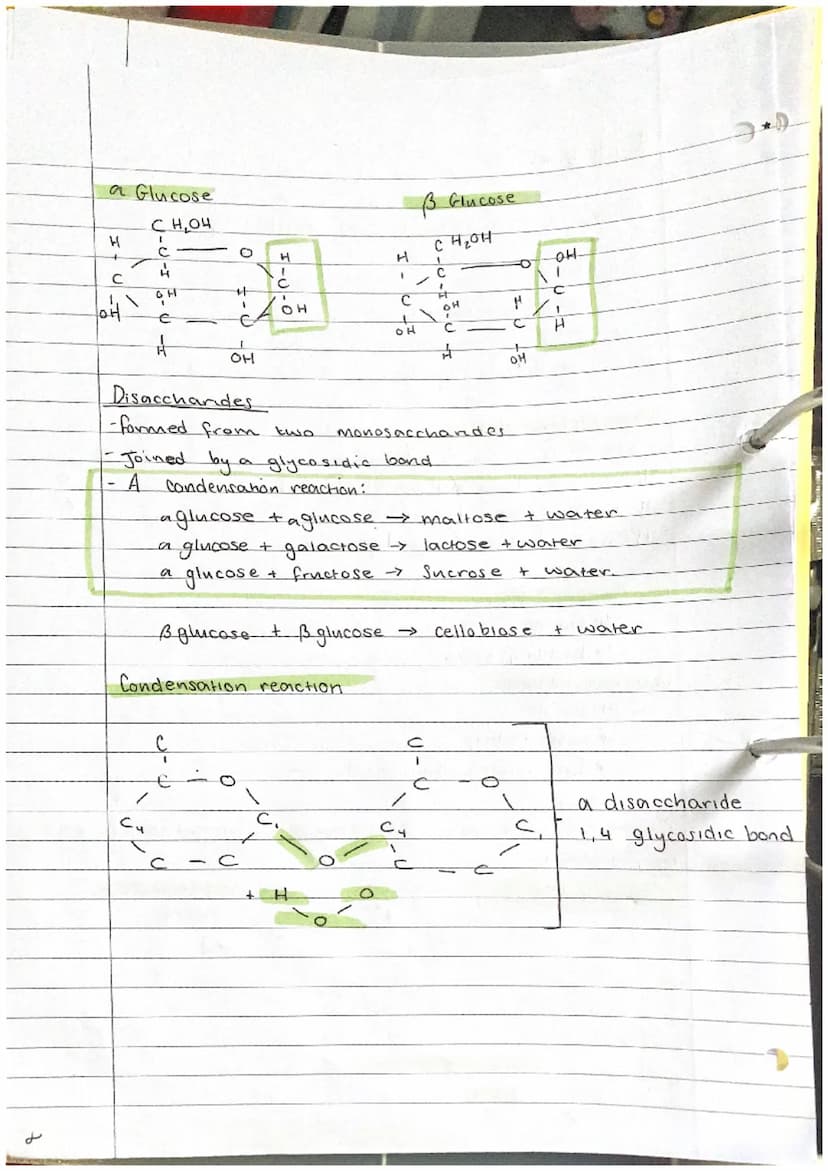 α Glucose
β Glucose
CH₂OH
H C O H
C H C
OH OH H OH
C C
H OH
CH₂OH
H C O OH
C H C
OH OH H H
C C
H OH
Disaccharides
- formed from two monosaccharides
- Joined by a glycosidic bond
- A condensation reaction:
α glucose + α glucose → maltose + water
α glucose + galactose → lactose + water
α glucose + fructose → Sucrose + water.
β glucose + β glucose → cellobiose + water
Condensation reaction
C C
C - O C - O
C₄ C₁ C₄ C₁
C - C O C - C
+ H O
O
a disaccharide
1,4 glycosidic bond